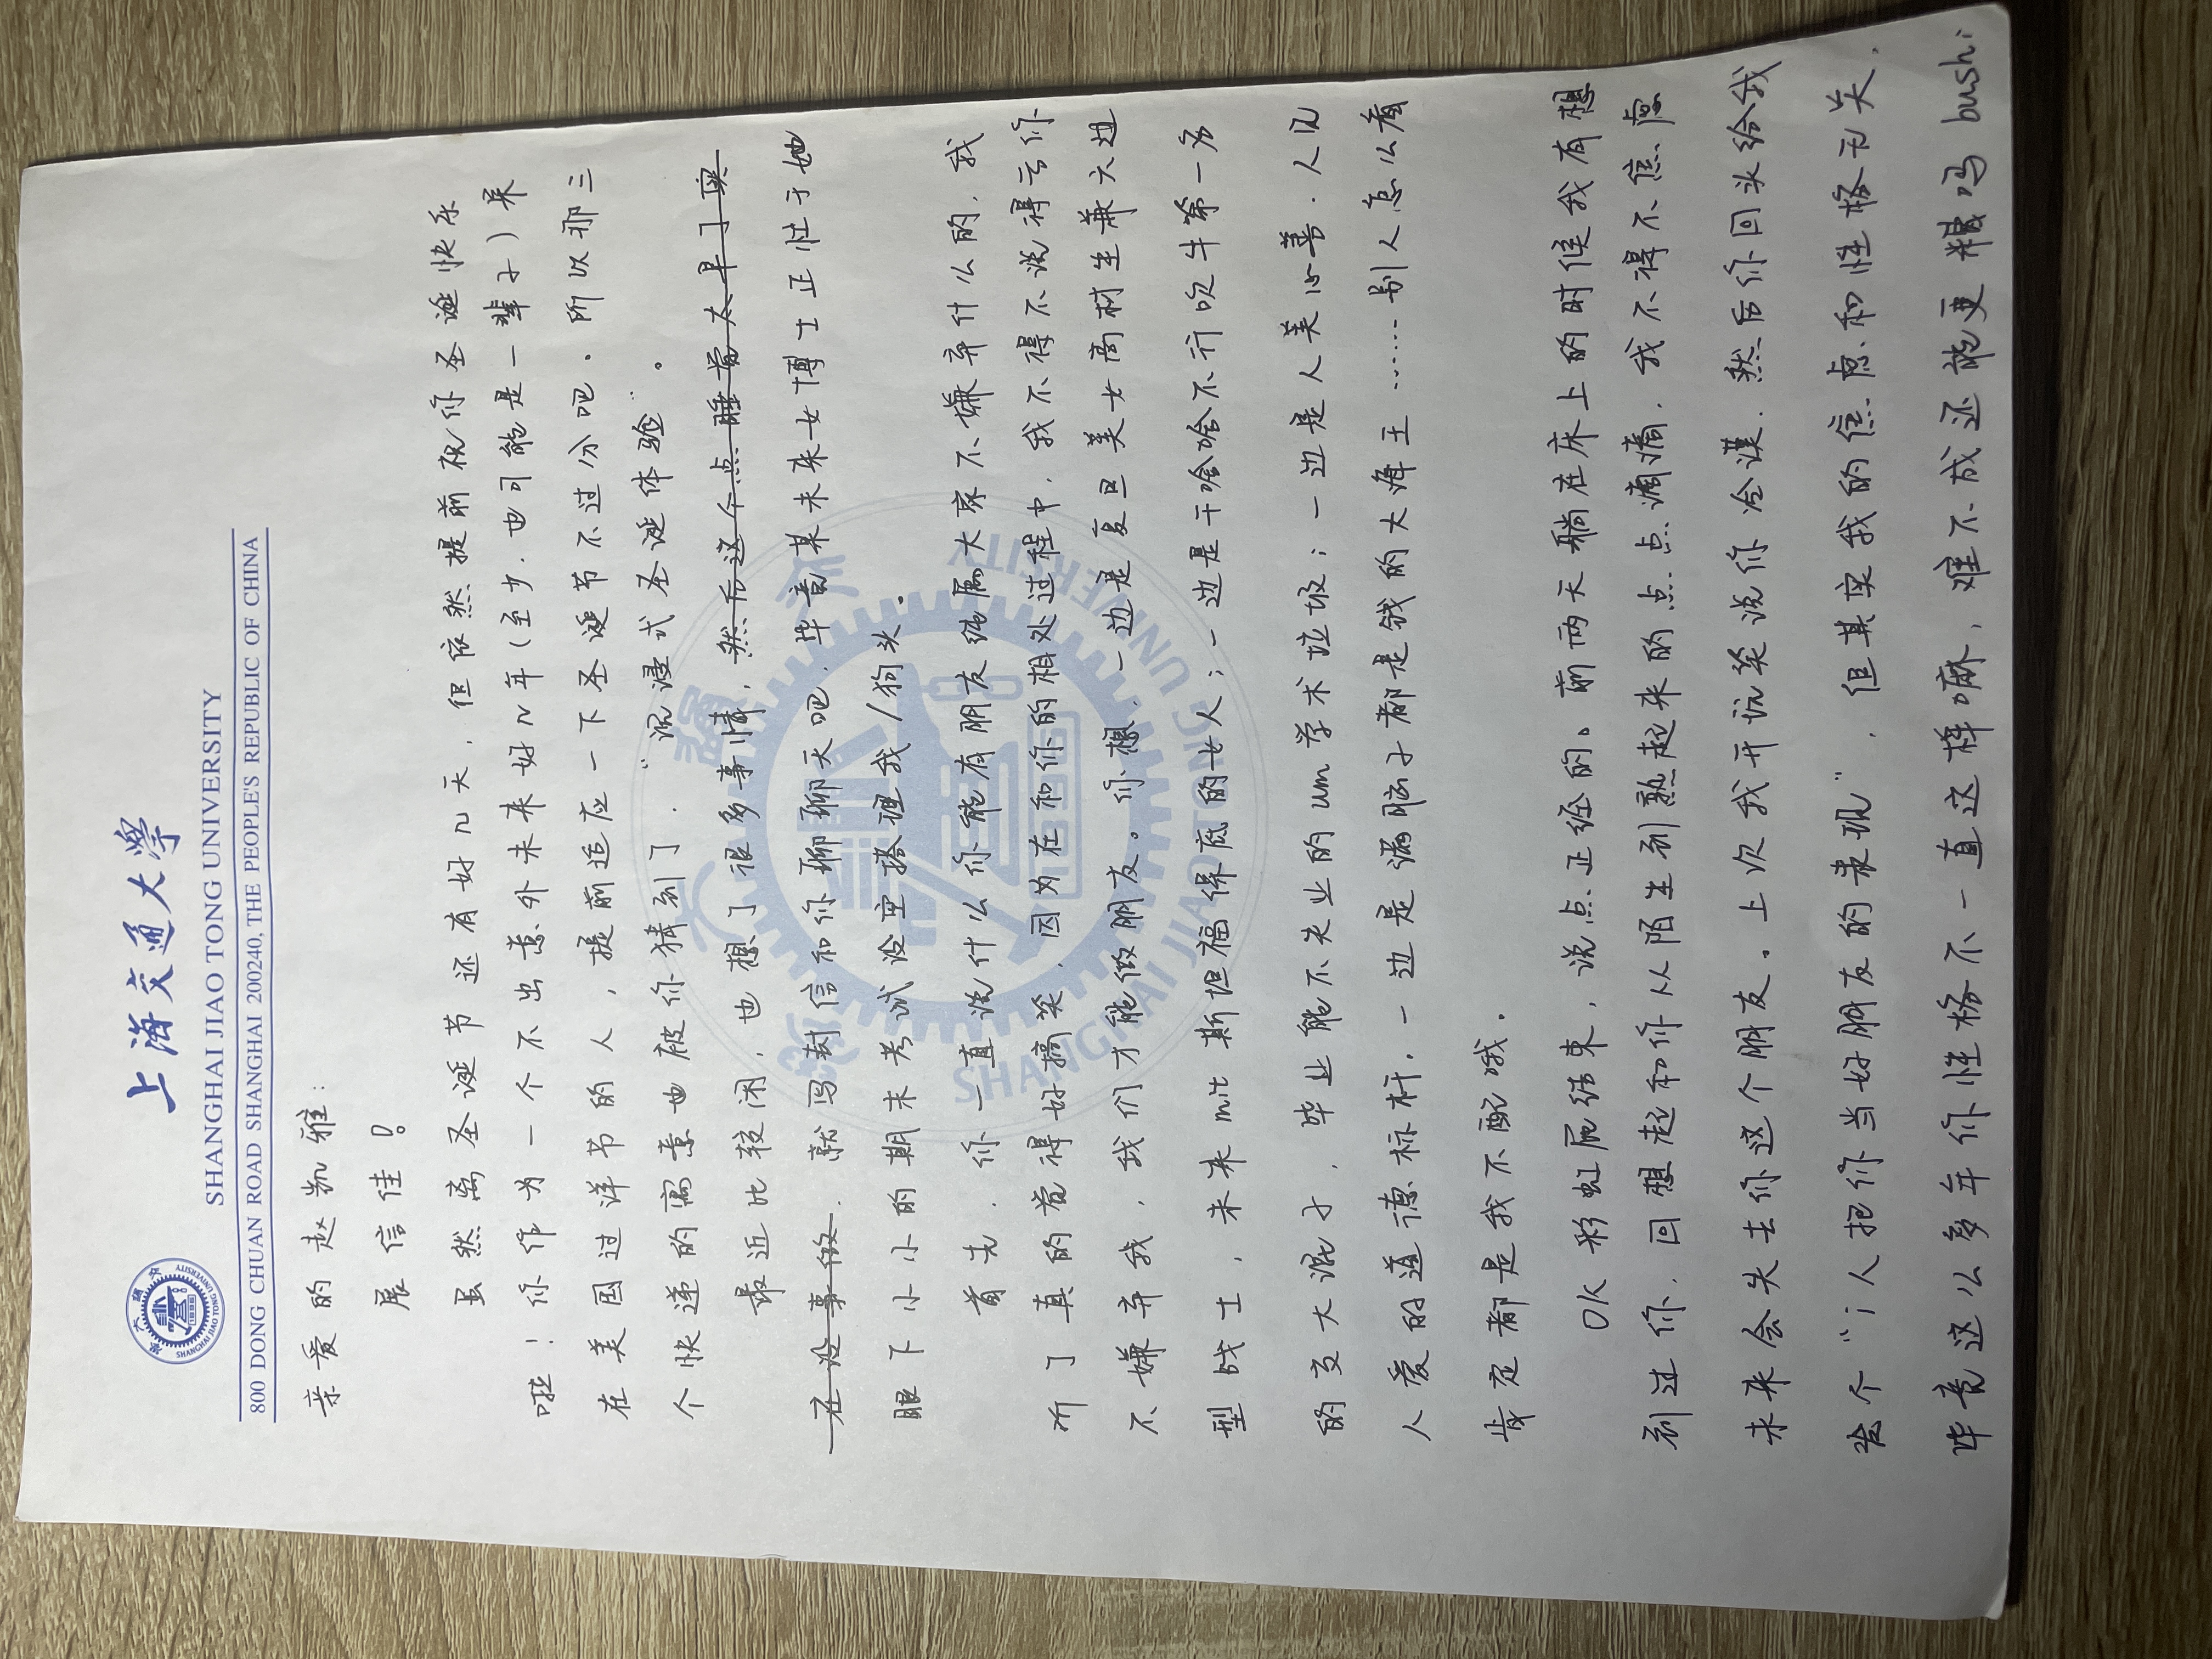 上海交通大學
SHANGHAI JIAO TONG UNIVERSITY
800 DONG CHUAN ROAD SHANGHAI 200240, THE PEOPLE'S REPUBLIC OF CHINA
亲爱的赵凯雅：
展信佳！
虽然离圣诞节还有好几天，但依然提前祝你圣诞快乐
啦！你作为一个不出意外未来好几年（至少，也可能是一辈子）呆
在美国过洋节的人，提前适应一下圣诞节不过分吧。所以那三
个快递的寓意也被你猜到了，“沉浸式圣诞体验”。
最近比较闲，也想了很多事情，然后这个点睡觉太早了实
在没事做，就写封信和你聊聊天吧，毕竟某未来女博士正忙于她
眼下小小的期末考试没空搭理我/狗头。
首先，你一直说什么你能有朋友纯属大家不嫌弃什么的，我
听了真的觉得好搞笑，因为在和你的相处过程中，我不得不说得亏你
不嫌弃我，我们才能做朋友。你想，一边是复旦美女高材生兼六边
型战士，未来mit斯坦福保底的女人；一边是干啥啥不行吹牛第一名
的交大混子，毕业能不失业的um学术垃圾；一边是人美心善，人见
人爱的道德标杆，一边是满脑子都是钱的大海王……别人怎么看
肯定都是我不配哦。
OK彩虹屁结束，说点正经的。前两天躺在床上的时候我有想
到过你，回想起和你从陌生到熟起来的点点滴滴，我不得不焦虑
未来会失去你这个朋友。上次我开玩笑说你冷漠，然后你回头给我
发个“i人把你当好朋友的表现”，但其实我的焦虑和性格无关，
毕竟这么多年你性格不一直这样嘛，难不成还能更糟吗bushi
SHANGHAI JIAO TONG UNIVERSITY
1896